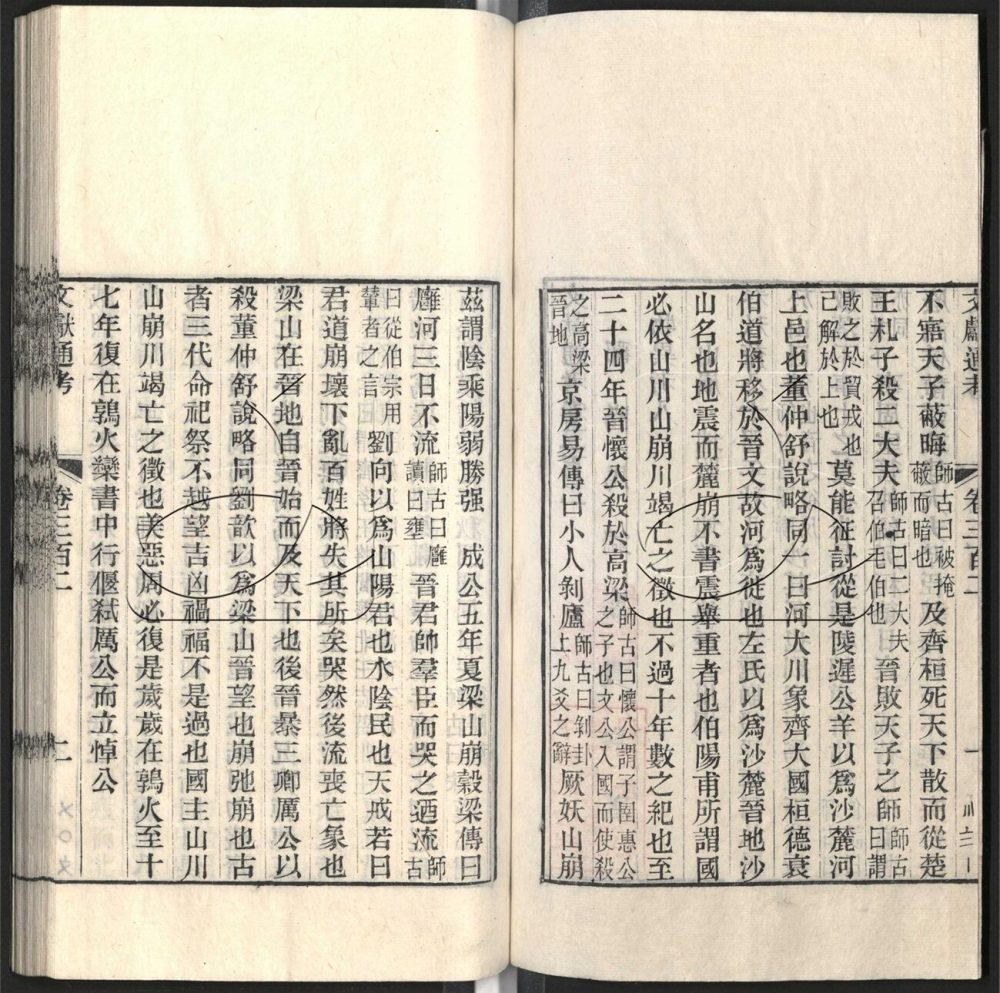 文獻通考 卷三百二 一
不寤天子蔽晦師古曰被掩蔽而暗也及齊桓死天下散而從楚
王札子殺二大夫師古曰二大夫召伯毛伯也晉敗天子之師師古曰謂
敗之於貿戎也己解於上也莫能征討從是陵遲公羊以爲沙麓河
上邑也董仲舒說略同一曰河大川象齊大國桓德衰
伯道將移於晉文故河爲徙也左氏以爲沙麓晉地沙
山名也地震而麓崩不書震舉重者也伯陽甫所謂國
必依山川山崩川竭亡之徵也不過十年數之紀也至
二十四年晉懷公殺於高梁師古曰懷公謂子圉惠公之子也文公入國而使殺
之高梁晉地京房易傳曰小人剝廬師古曰剝卦上九爻之辭厥妖山崩
茲謂陰乘陽弱勝强 成公五年夏梁山崩穀梁傳曰
廱河三日不流師古曰廱讀曰壅晉君帥羣臣而哭之迺流師古
曰從伯宗用輦者之言劉向以爲山陽君也水陰民也天戒若曰
君道崩壞下亂百姓將失其所矣哭然後流喪亡象也
梁山在晉地自晉始而及天下也後晉暴三卿厲公以
殺董仲舒說略同劉歆以爲梁山晉望也崩弛崩也古
者三代命祀祭不越望吉凶禍福不是過也國主山川
山崩川竭亡之徵也美惡周必復是歲歲在鶉火至十
七年復在鶉火欒書中行偃弑厲公而立悼公
文獻通考 卷三百二 二